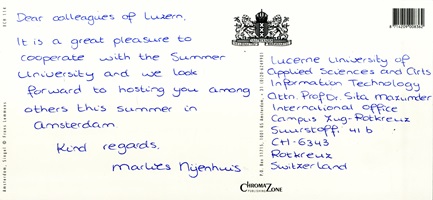 Dear colleagues of Luzern,
It is a great pleasure to
cooperate with the Summer
University and we look
forward to hosting you among
others this summer in
Amsterdam
Kind regards,
Marlies Nijenhuis
Lucerne University of
Applied Sciences and Arts
Information Technology
Attn. Prof Dr. Sita Mazumder
International Office
Campus Zug-Rotkreuz
Suurstoffi 41 b
CH-6343
Rotkreuz
Switzerland
CHROMAZONE
PUBLISHING